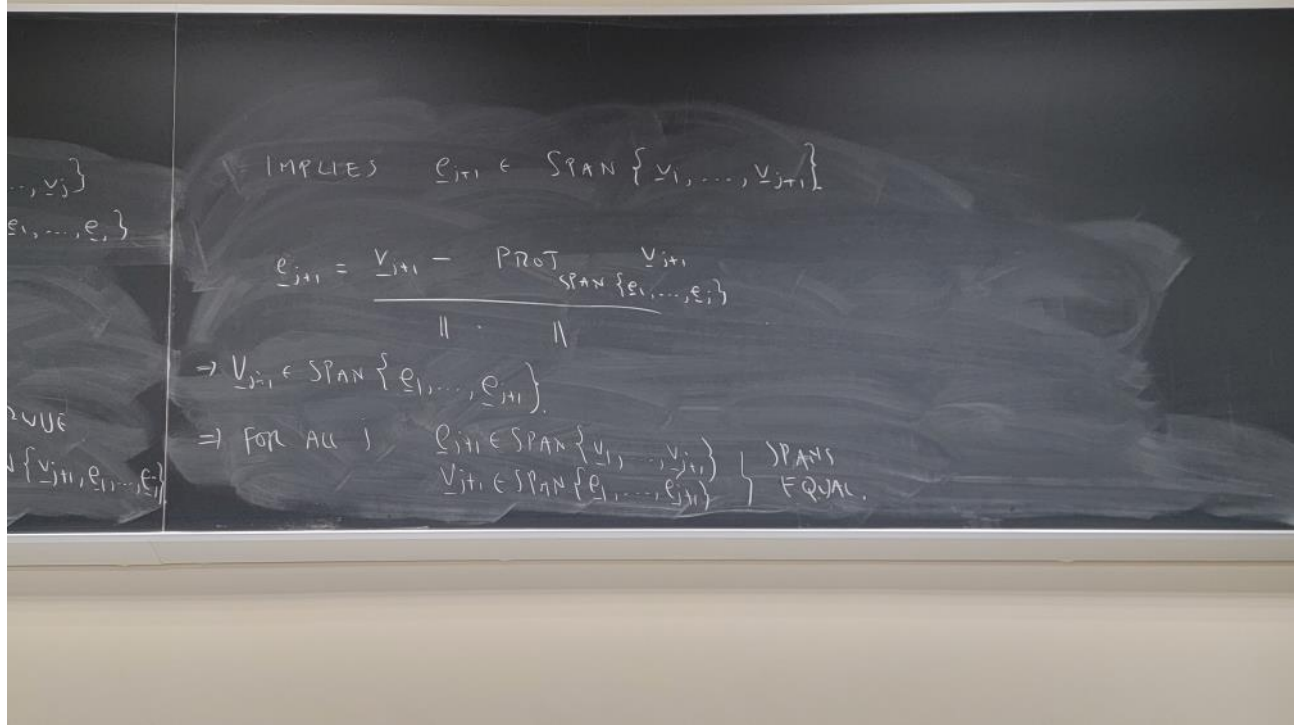 .., v̲ⱼ}
e̲₁, ..., e̲ⱼ}
N {v̲ⱼ₊₁, e̲₁, ..., e̲ⱼ}
IMPLIES e̲ⱼ₊₁ ∈ SPAN {v̲₁, ..., v̲ⱼ₊₁}
e̲ⱼ₊₁ = v̲ⱼ₊₁ − PROJ v̲ⱼ₊₁
SPAN {e̲₁, ..., e̲ⱼ}
|| · ||
→ v̲ⱼ₊₁ ∈ SPAN {e̲₁, ..., e̲ⱼ₊₁}.
⇒ FOR ALL j e̲ⱼ₊₁ ∈ SPAN {v̲₁, ..., v̲ⱼ₊₁} } SPANS
v̲ⱼ₊₁ ∈ SPAN {e̲₁, ..., e̲ⱼ₊₁} EQUAL.